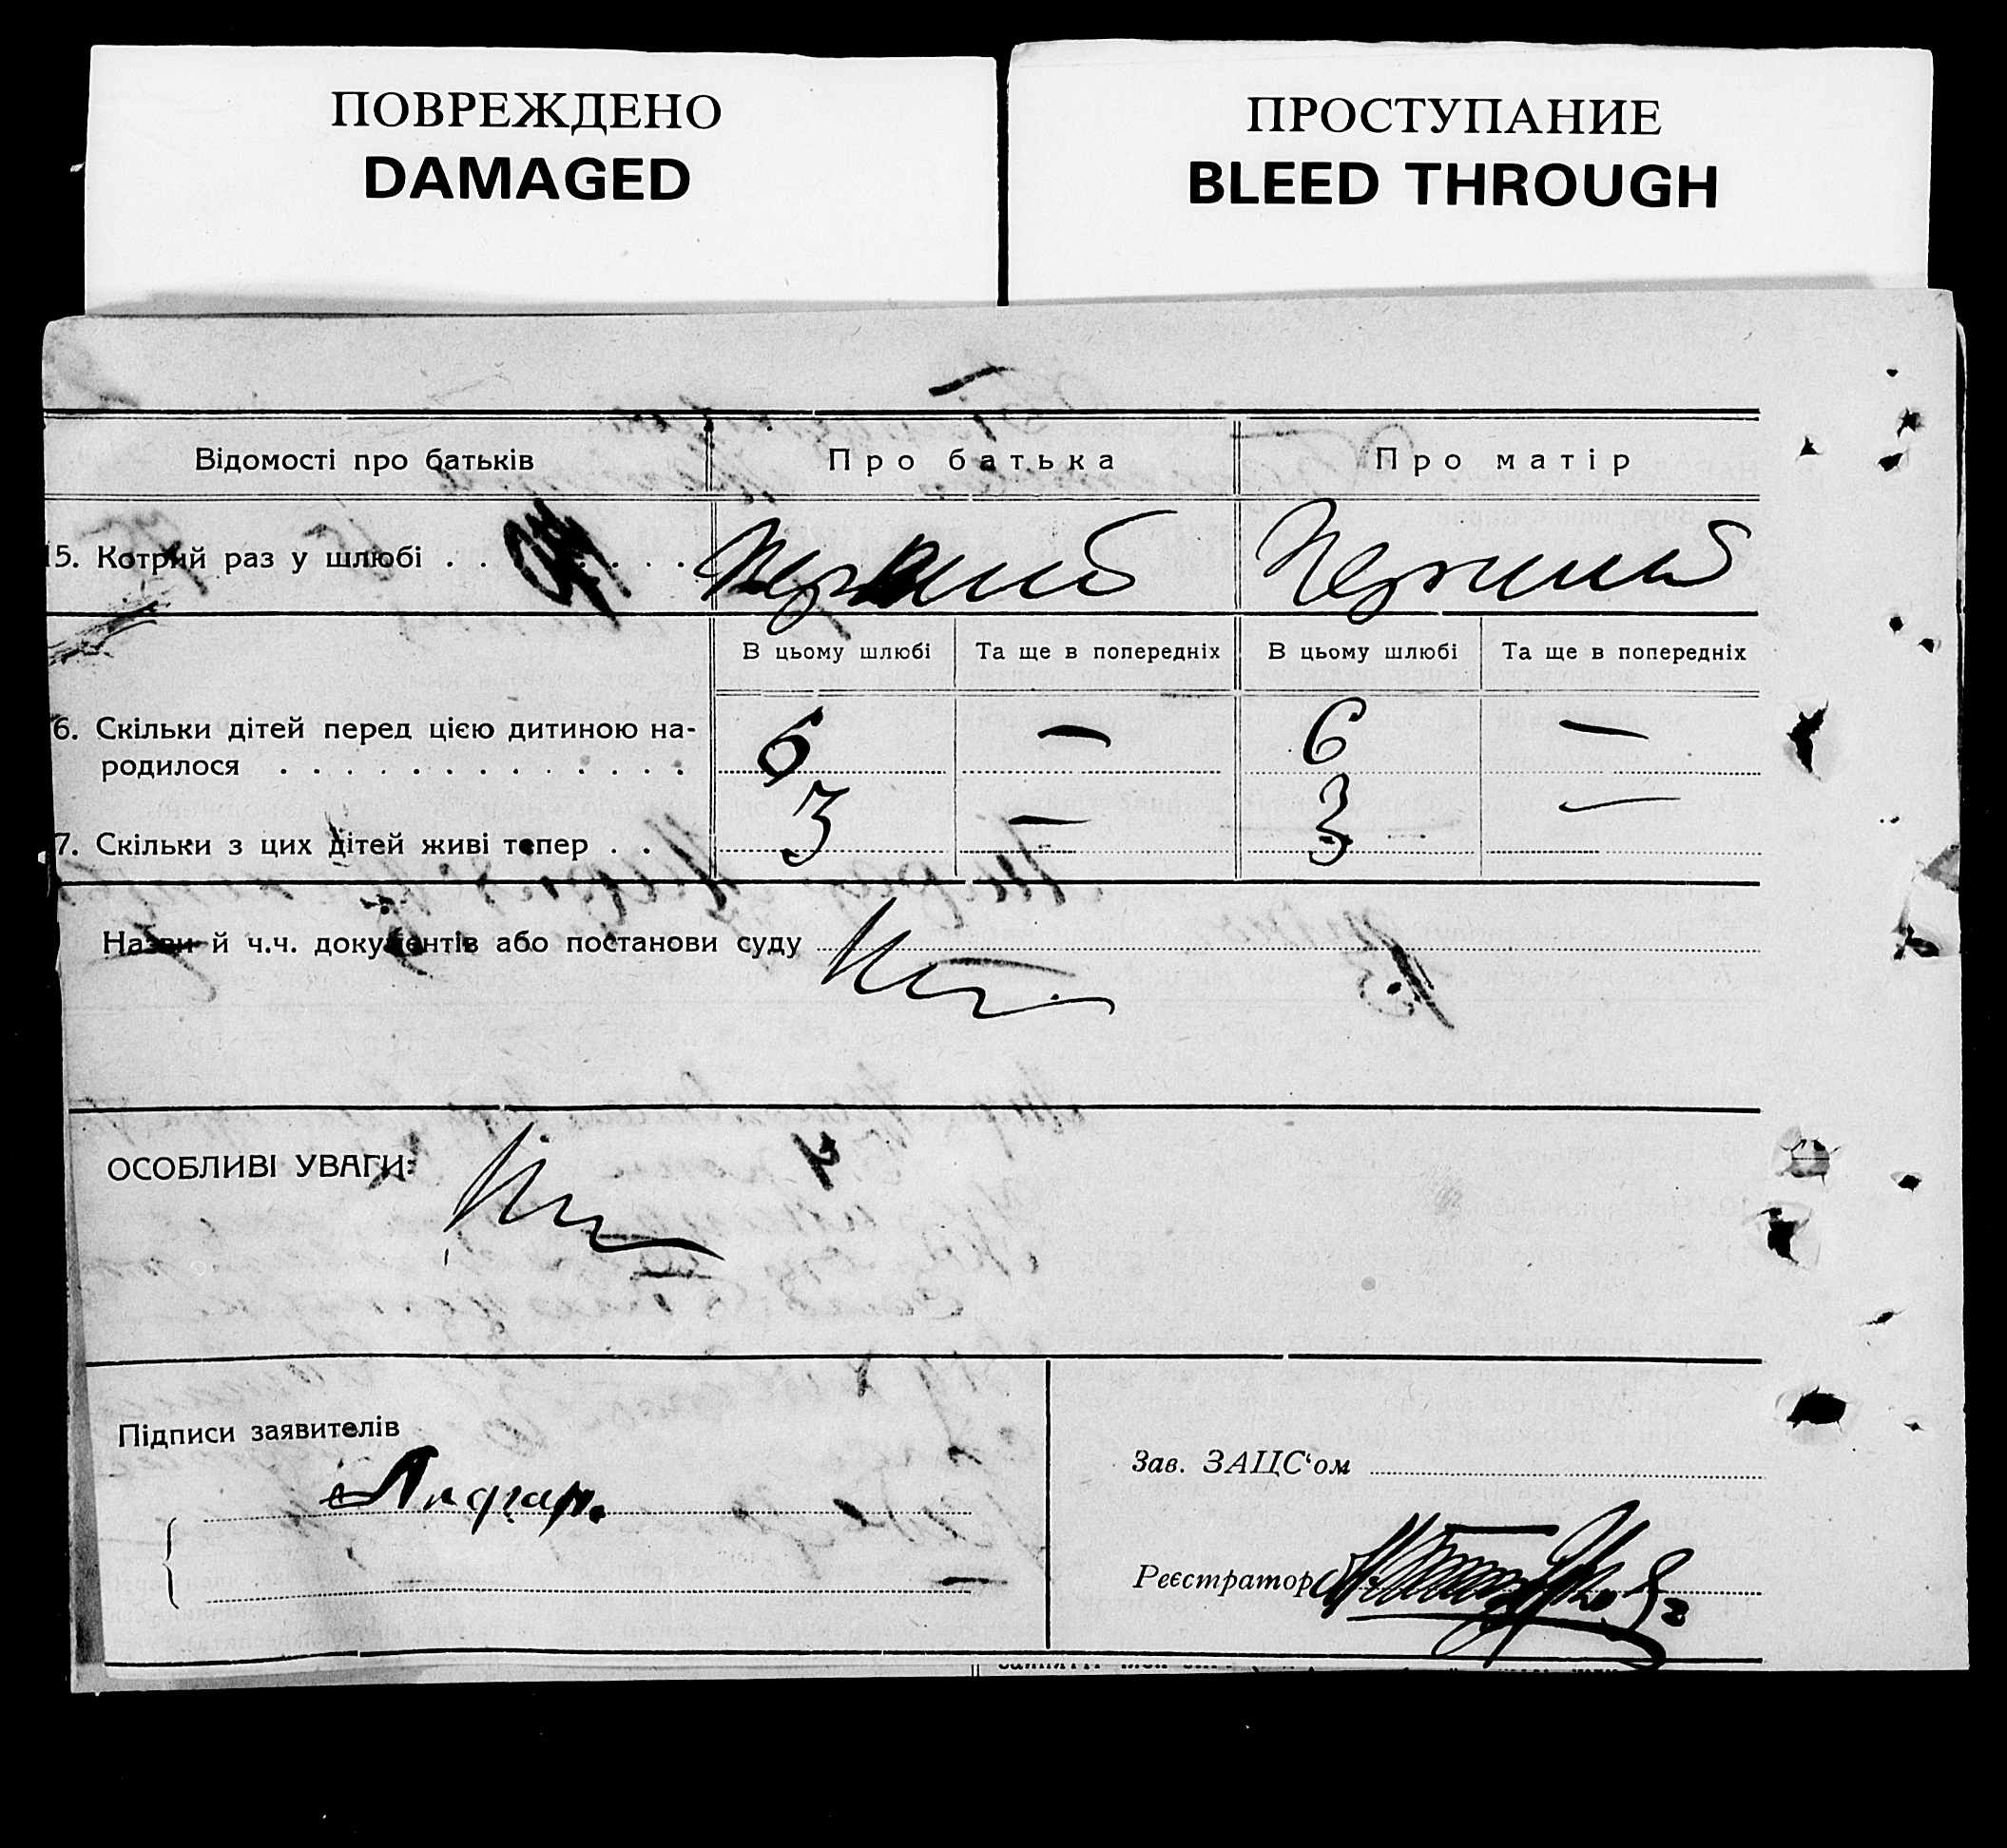 ПОВРЕЖДЕНО
DAMAGED
ПРОСТУПАНИЕ
BLEED THROUGH
Відомості про батьків
Про батька
Про матір
15. Котрий раз у шлюбі . . . . . . . .
Перший
Перший
В цьому шлюбі
Та ще в попередніх
В цьому шлюбі
Та ще в попередніх
6. Скільки дітей перед цією дитиною на-
родилося . . . . . . . . . . . . .
6
—
6
—
7. Скільки з цих дітей живі тепер . . .
3
—
3
—
Назви й ч.ч. документів або постанови суду
ОСОБЛИВІ УВАГИ:
Підписи заявителів
Зав. ЗАЦС‘ом
Реєстратор